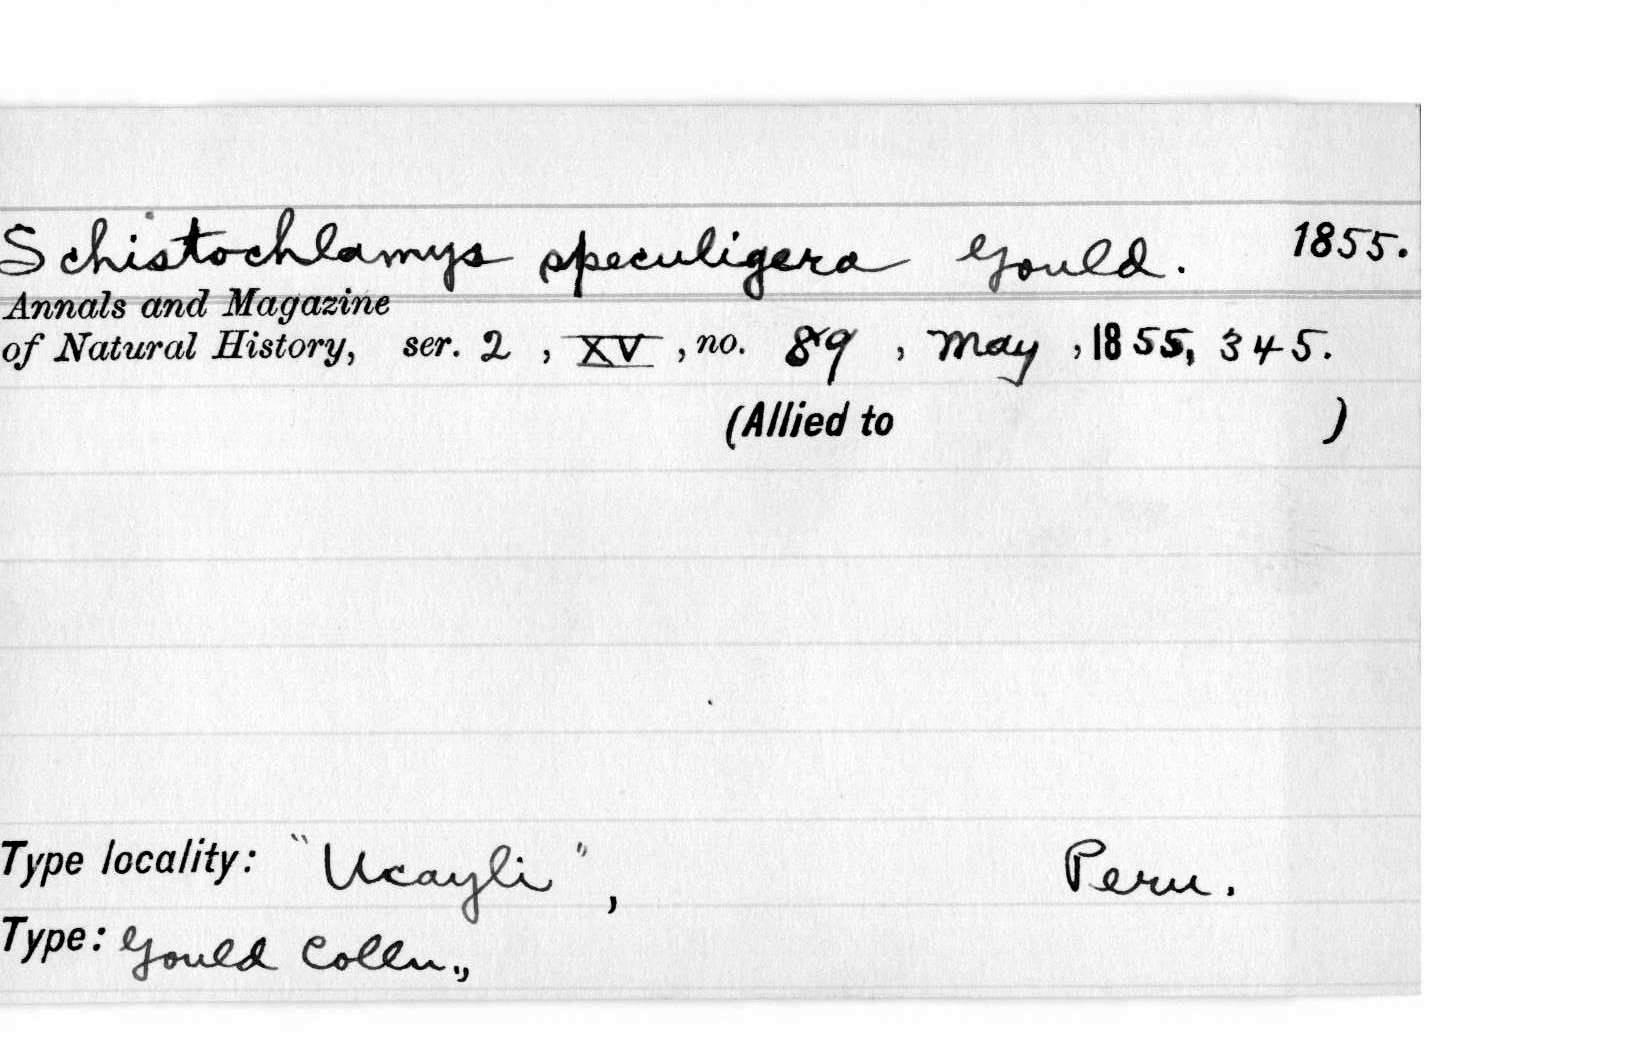 Schistochlamys speculigera Gould. 1855.
Annals and Magazine
of Natural History, ser. 2, XV, no. 89, May, 1855, 345.
(Allied to )
Type locality: "Ucayli", Peru.
Type: Gould Colln.,